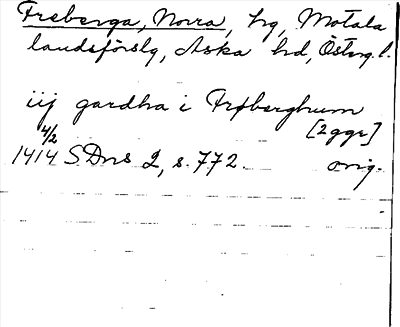 Freberga, Norra, hg, Motala
landsförslg, Aska hd, Östерg.l.
iij gardha i Frøberghum
[2ggr]
4/2
1414 SDns 2, s. 772. orig.